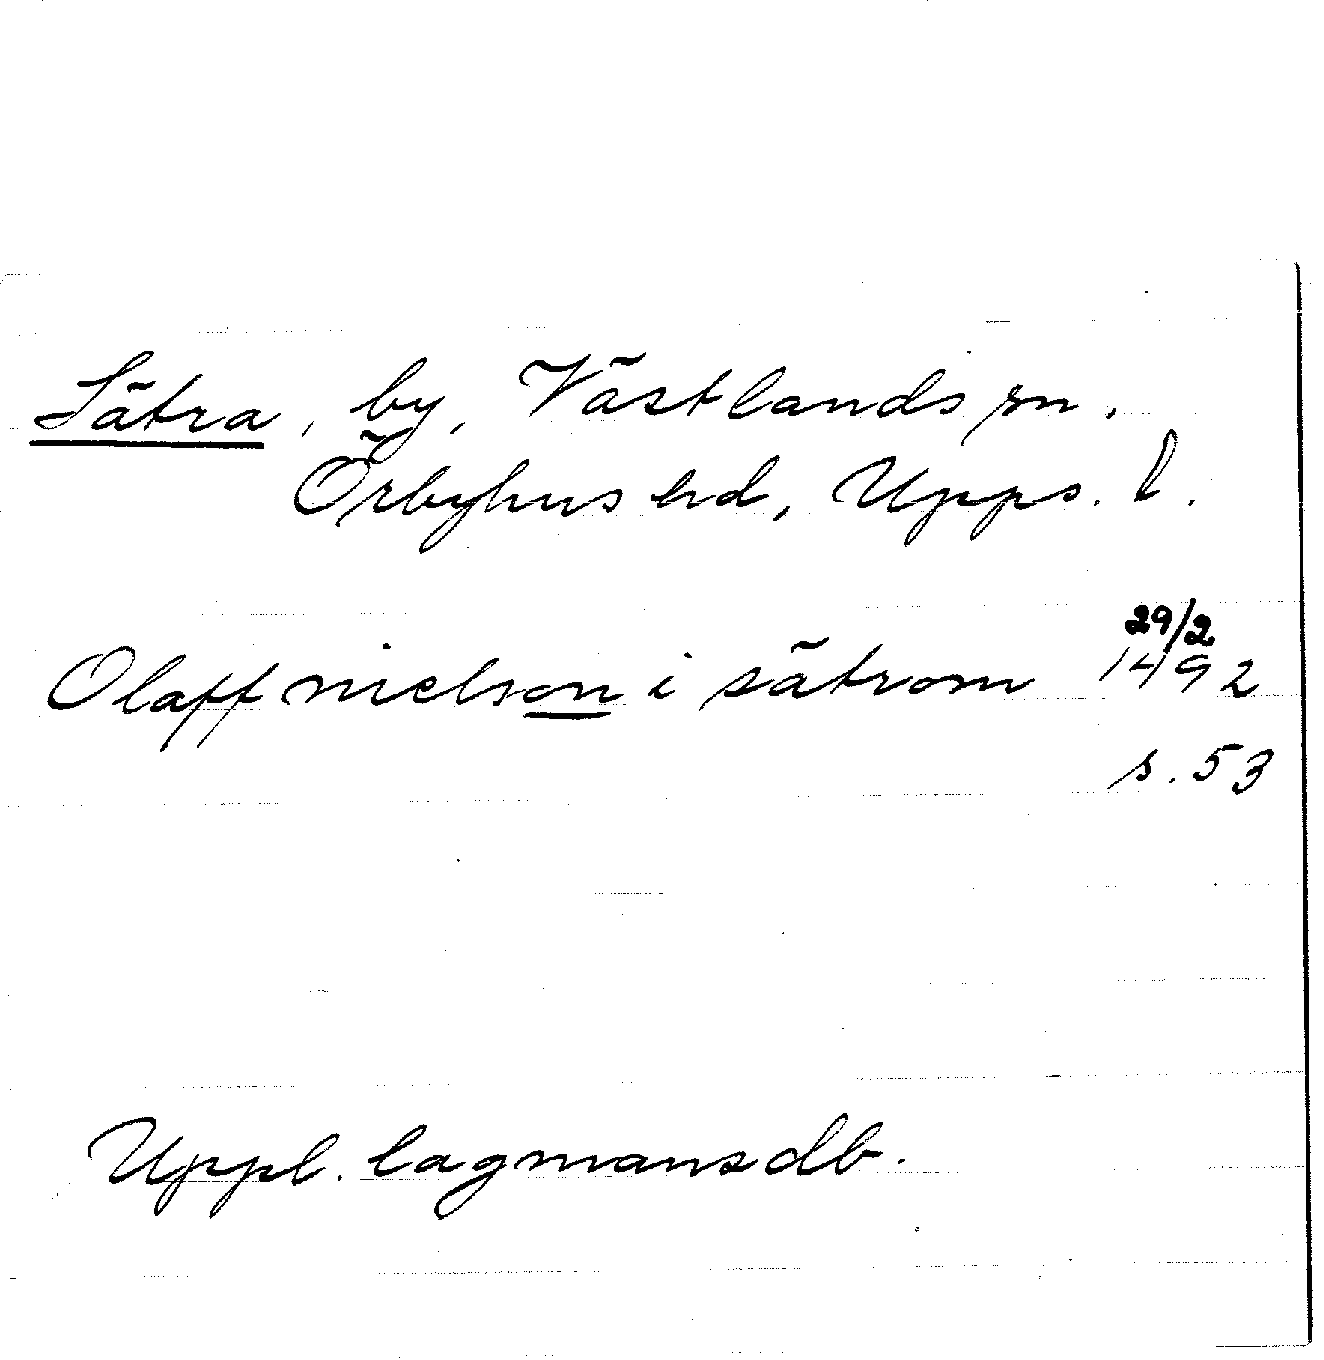 Sätra, by, Västlands sn.
Örbyhus hd, Upps. l.
29/2
Olaff nielson i sätrom 1492
s. 53
Uppl. lagmansdb.